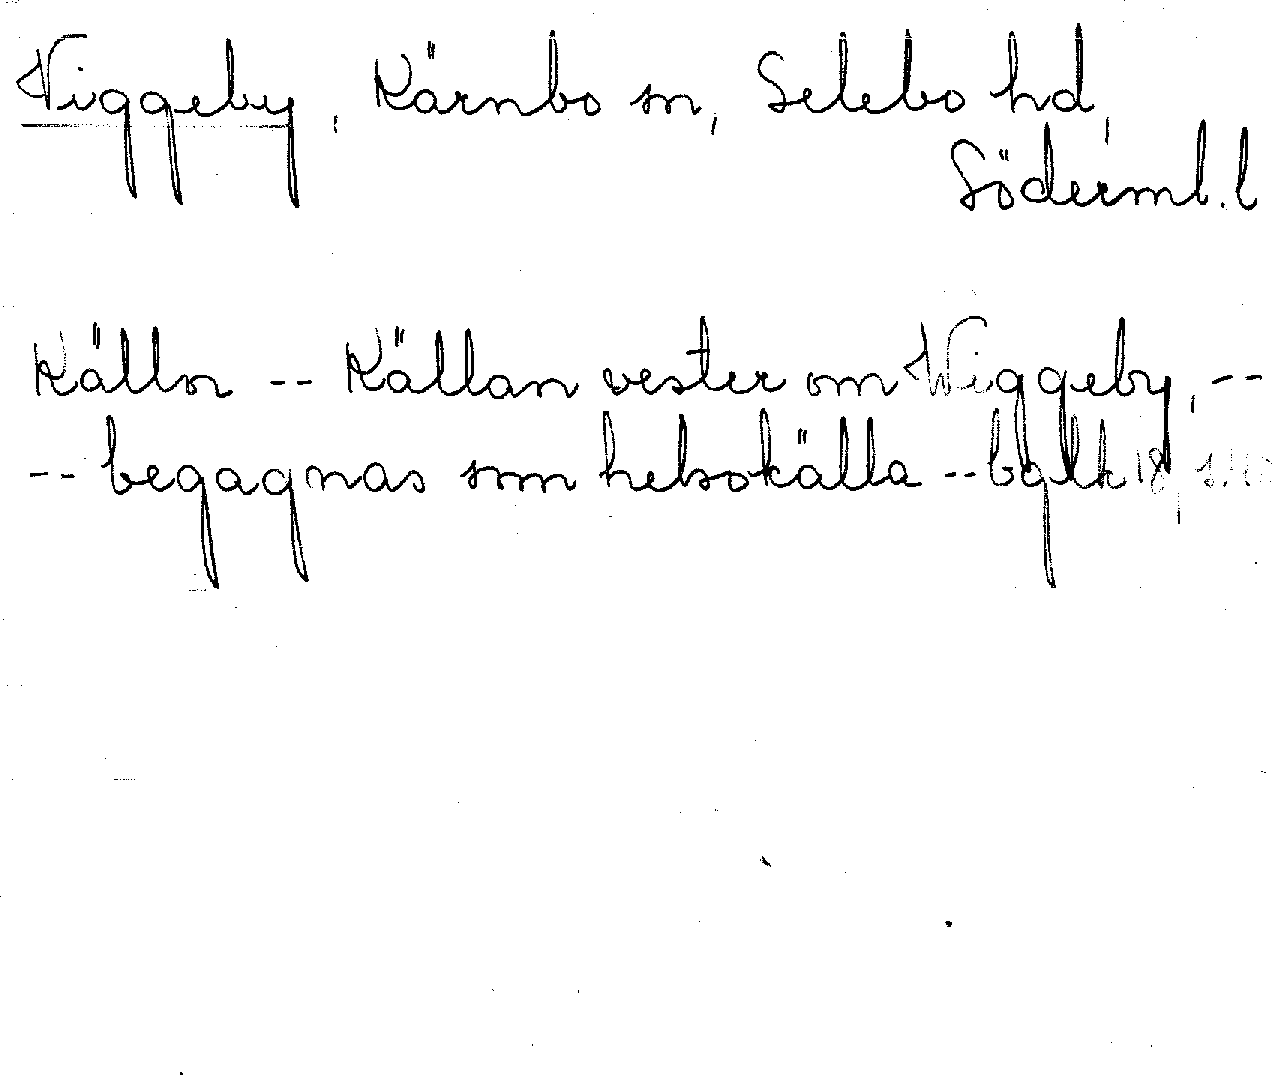 Viggeby, Kärnbo sn, Selebo hd,
Söderml. l
Källor -- Källan vester om Wiggeby, --
-- begagnas som helsokälla -- bglk 18,